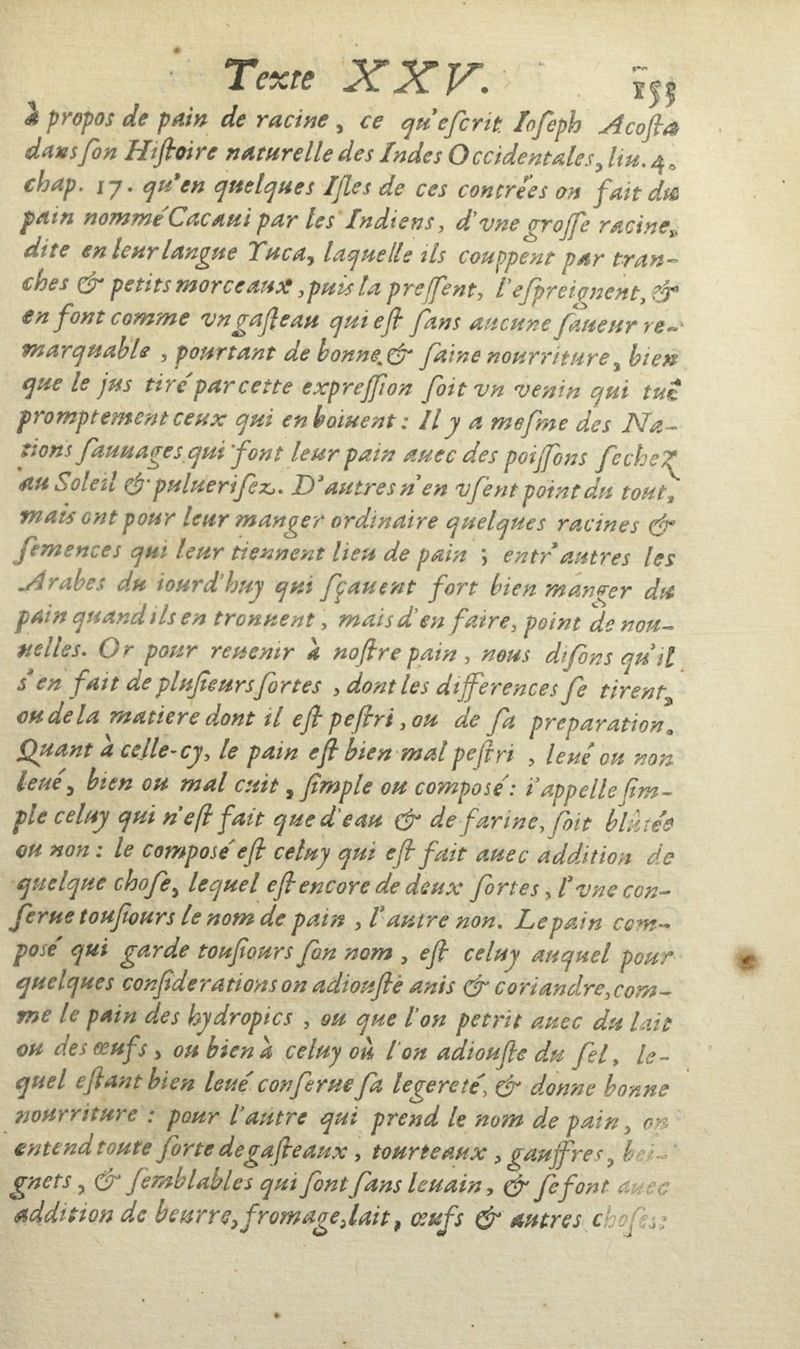 Texte XXV. 153
à propos de pain de racine, ce qu'eſcrit Ioſeph Acoſta
dans ſon Hiſtoire naturelle des Indes Occidentales, liu. 4.
chap. 17. qu'en quelques Iſles de ces contrées on fait du
pain nommé Cacaui par les Indiens, d'vne groſſe racine,
dite en leur langue Yuca, laquelle ils couppent par tran-
ches & petits morceaux, puis la preſſent, l'eſpreignent, &
en font comme vn gaſteau qui eſt ſans aucune ſaueur re-
marquable, pourtant de bonne & ſaine nourriture, bien
que le jus tiré par cette expreſſion ſoit vn venin qui tuë
promptement ceux qui en boiuent : Il y a meſme des Na-
tions ſauuages qui font leur pain auec des poiſſons ſechez
au Soleil & puluerifez. D'autres n'en vſent point du tout,
mais ont pour leur manger ordinaire quelques racines &
ſemences qui leur tiennent lieu de pain ; entr'autres les
Arabes du iourd'huy qui ſçauent fort bien manger du
pain quand ils en trouuent, mais d'en faire, point de nou-
uelles. Or pour reuenir à noſtre pain, nous diſons qu'il
s'en fait de pluſieurs ſortes, dont les differences ſe tirent,
ou de la matiere dont il eſt peſtri, ou de ſa preparation.
Quant à celle-cy, le pain eſt bien mal peſtri, leué ou non
leué, bien ou mal cuit, ſimple ou composé : i'appelle ſim-
ple celuy qui n'eſt fait que d'eau & de farine, ſoit blûtée
ou non : le composé eſt celuy qui eſt fait auec addition de
quelque choſe, lequel eſt encore de deux ſortes, l'vne con-
ſerue touſiours le nom de pain, l'autre non. Le pain com-
posé qui garde touſiours ſon nom, eſt celuy auquel pour
quelques conſiderations on adiouſte anis & coriandre, com-
me le pain des hydropics, ou que l'on petrit auec du lait
ou des œufs, ou bien à celuy où l'on adiouſte du ſel, le-
quel eſtant bien leué conſerue ſa legereté, & donne bonne
nourriture : pour l'autre qui prend le nom de pain, on
entend toute ſorte de gaſteaux, tourteaux, gauffres, bei-
gnets, & ſemblables qui ſont ſans leuain, & ſe font auec
addition de beurre, fromage, lait, œufs & autres choſes: